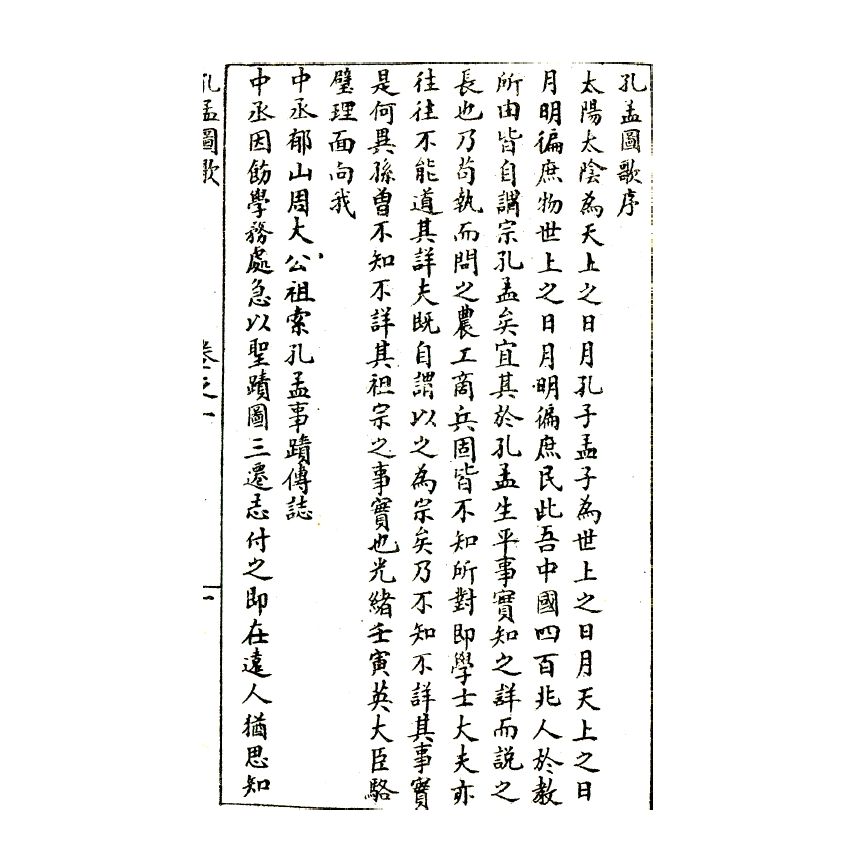 孔孟圖歌序
太陽太陰為天上之日月孔子孟子為世上之日月天上之日
月明徧庶物世上之日月明徧庶民此吾中國四百兆人於教
所由皆自謂宗孔孟矣宜其於孔孟生平事實知之詳而説之
長也乃苟執而問之農工商兵固皆不知所對即學士大夫亦
往往不能道其詳夫既自謂以之為宗矣乃不知不詳其事實
是何異孫曾不知不詳其祖宗之事實也光緒壬寅英大臣駱
璧理面向我
中丞郁山周大公祖索孔孟事蹟傳誌
中丞因飭學務處急以聖蹟圖三遷志付之即在遠人猶思知
孔孟圖歌
卷之一
一